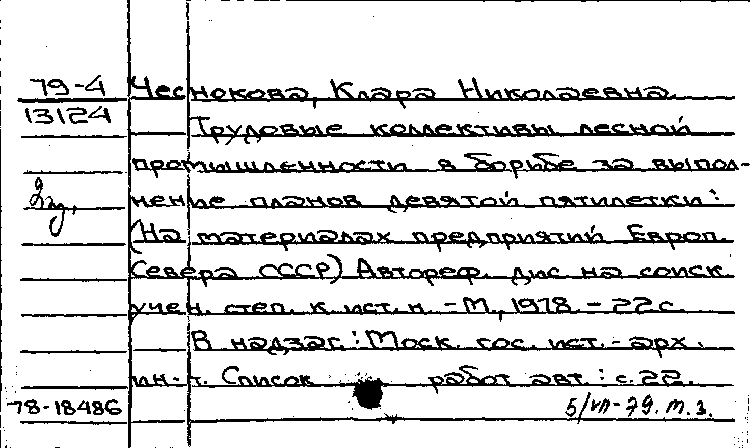 79-4 Чеснокова, Клара Николаевна.
13124 Трудовые коллективы лесной
промышленности в борьбе за выпол-
нение планов девятой пятилетки:
(На материалах предприятий Европ.
Севера СССР) Автореф. дис на соиск
учен. степ. к. ист. н. - М., 1978. - 22 с.
В надзаг.: Моск. гос. ист.-арх.
ин-т. Список работ авт.: с. 22.
78-18486 5/VII-79. т. 3.